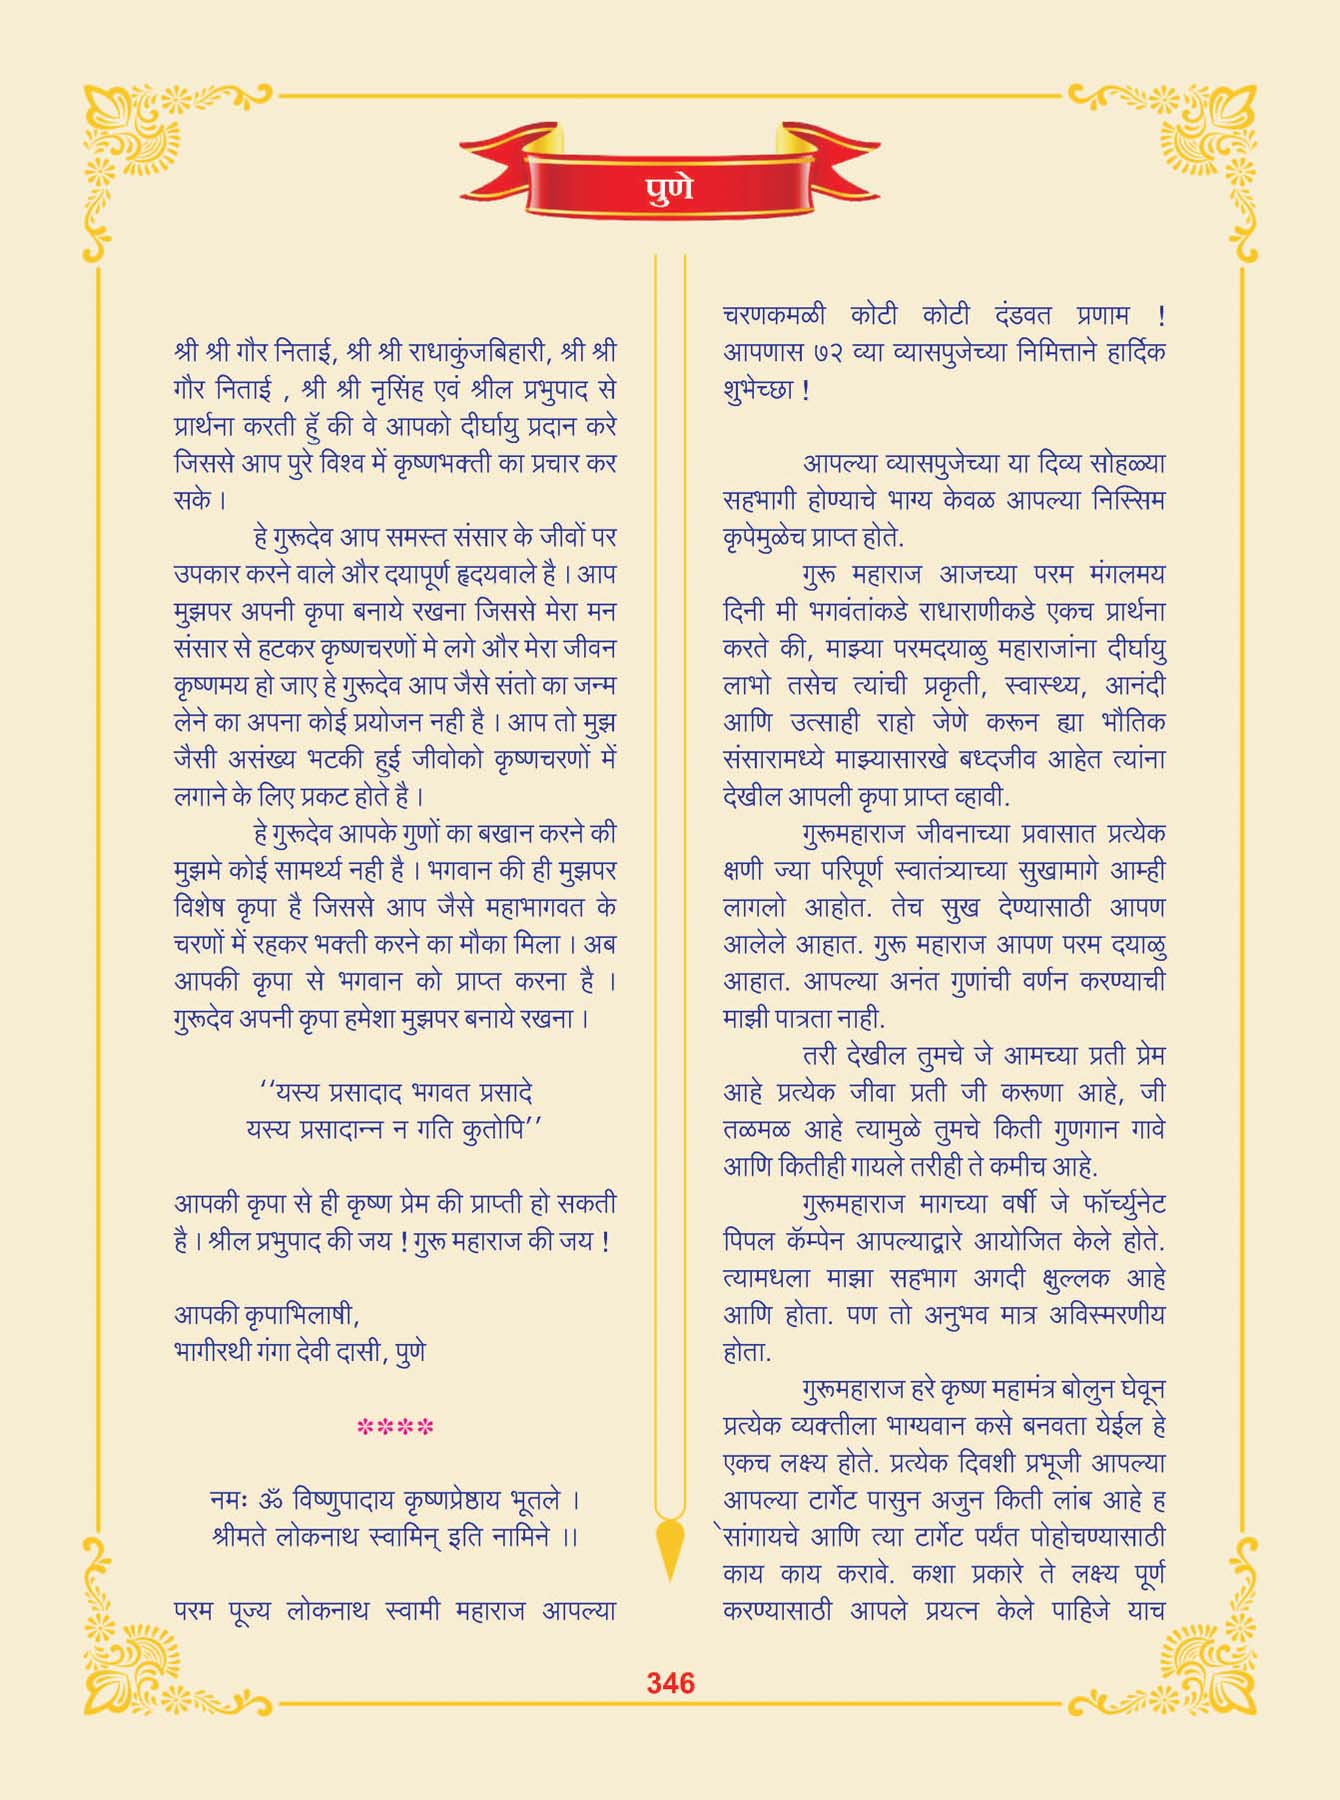 पुणे
श्री श्री गौर निताई, श्री श्री राधाकुंजबिहारी, श्री श्री
गौर निताई , श्री श्री नृसिंह एवं श्रील प्रभुपाद से
प्रार्थना करती हुॅं की वे आपको दीर्घायु प्रदान करे
जिससे आप पुरे विश्व में कृष्णभक्ती का प्रचार कर
सके ।
हे गुरूदेव आप समस्त संसार के जीवों पर
उपकार करने वाले और दयापूर्ण हृदयवाले है । आप
मुझपर अपनी कृपा बनाये रखना जिससे मेरा मन
संसार से हटकर कृष्णचरणों मे लगे और मेरा जीवन
कृष्णमय हो जाए हे गुरूदेव आप जैसे संतो का जन्म
लेने का अपना कोई प्रयोजन नही है । आप तो मुझ
जैसी असंख्य भटकी हुई जीवोको कृष्णचरणों में
लगाने के लिए प्रकट होते है ।
हे गुरूदेव आपके गुणों का बखान करने की
मुझमे कोई सामर्थ्य नही है । भगवान की ही मुझपर
विशेष कृपा है जिससे आप जैसे महाभागवत के
चरणों में रहकर भक्ती करने का मौका मिला । अब
आपकी कृपा से भगवान को प्राप्त करना है ।
गुरूदेव अपनी कृपा हमेशा मुझपर बनाये रखना ।
‘‘यस्य प्रसादाद भगवत प्रसादे
यस्य प्रसादान्न न गति कुतोपि’’
आपकी कृपा से ही कृष्ण प्रेम की प्राप्ती हो सकती
है । श्रील प्रभुपाद की जय ! गुरू महाराज की जय !
आपकी कृपाभिलाषी,
भागीरथी गंगा देवी दासी, पुणे
****
नमः ॐ विष्णुपादाय कृष्णप्रेष्ठाय भूतले ।
श्रीमते लोकनाथ स्वामिन् इति नामिने ।।
परम पूज्य लोकनाथ स्वामी महाराज आपल्या
चरणकमळी कोटी कोटी दंडवत प्रणाम !
आपणास ७२ व्या व्यासपुजेच्या निमित्ताने हार्दिक
शुभेच्छा !
आपल्या व्यासपुजेच्या या दिव्य सोहळ्या
सहभागी होण्याचे भाग्य केवळ आपल्या निस्सिम
कृपेमुळेच प्राप्त होते.
गुरू महाराज आजच्या परम मंगलमय
दिनी मी भगवंतांकडे राधाराणीकडे एकच प्रार्थना
करते की, माझ्या परमदयाळु महाराजांना दीर्घायु
लाभो तसेच त्यांची प्रकृती, स्वास्थ्य, आनंदी
आणि उत्साही राहो जेणे करून ह्या भौतिक
संसारामध्ये माझ्यासारखे बध्दजीव आहेत त्यांना
देखील आपली कृपा प्राप्त व्हावी.
गुरूमहाराज जीवनाच्या प्रवासात प्रत्येक
क्षणी ज्या परिपूर्ण स्वातंत्र्याच्या सुखामागे आम्ही
लागलो आहोत. तेच सुख देण्यासाठी आपण
आलेले आहात. गुरू महाराज आपण परम दयाळु
आहात. आपल्या अनंत गुणांची वर्णन करण्याची
माझी पात्रता नाही.
तरी देखील तुमचे जे आमच्या प्रती प्रेम
आहे प्रत्येक जीवा प्रती जी करूणा आहे, जी
तळमळ आहे त्यामुळे तुमचे किती गुणगान गावे
आणि कितीही गायले तरीही ते कमीच आहे.
गुरूमहाराज मागच्या वर्षी जे फॉर्च्युनेट
पिपल कॅम्पेन आपल्याद्वारे आयोजित केले होते.
त्यामधला माझा सहभाग अगदी क्षुल्लक आहे
आणि होता. पण तो अनुभव मात्र अविस्मरणीय
होता.
गुरूमहाराज हरे कृष्ण महामंत्र बोलुन घेवून
प्रत्येक व्यक्तीला भाग्यवान कसे बनवता येईल हे
एकच लक्ष्य होते. प्रत्येक दिवशी प्रभूजी आपल्या
आपल्या टार्गेट पासुन अजुन किती लांब आहे ह
े सांगायचे आणि त्या टार्गेट पर्यंत पोहोचण्यासाठी
काय काय करावे. कशा प्रकारे ते लक्ष्य पूर्ण
करण्यासाठी आपले प्रयत्न केले पाहिजे याच
346